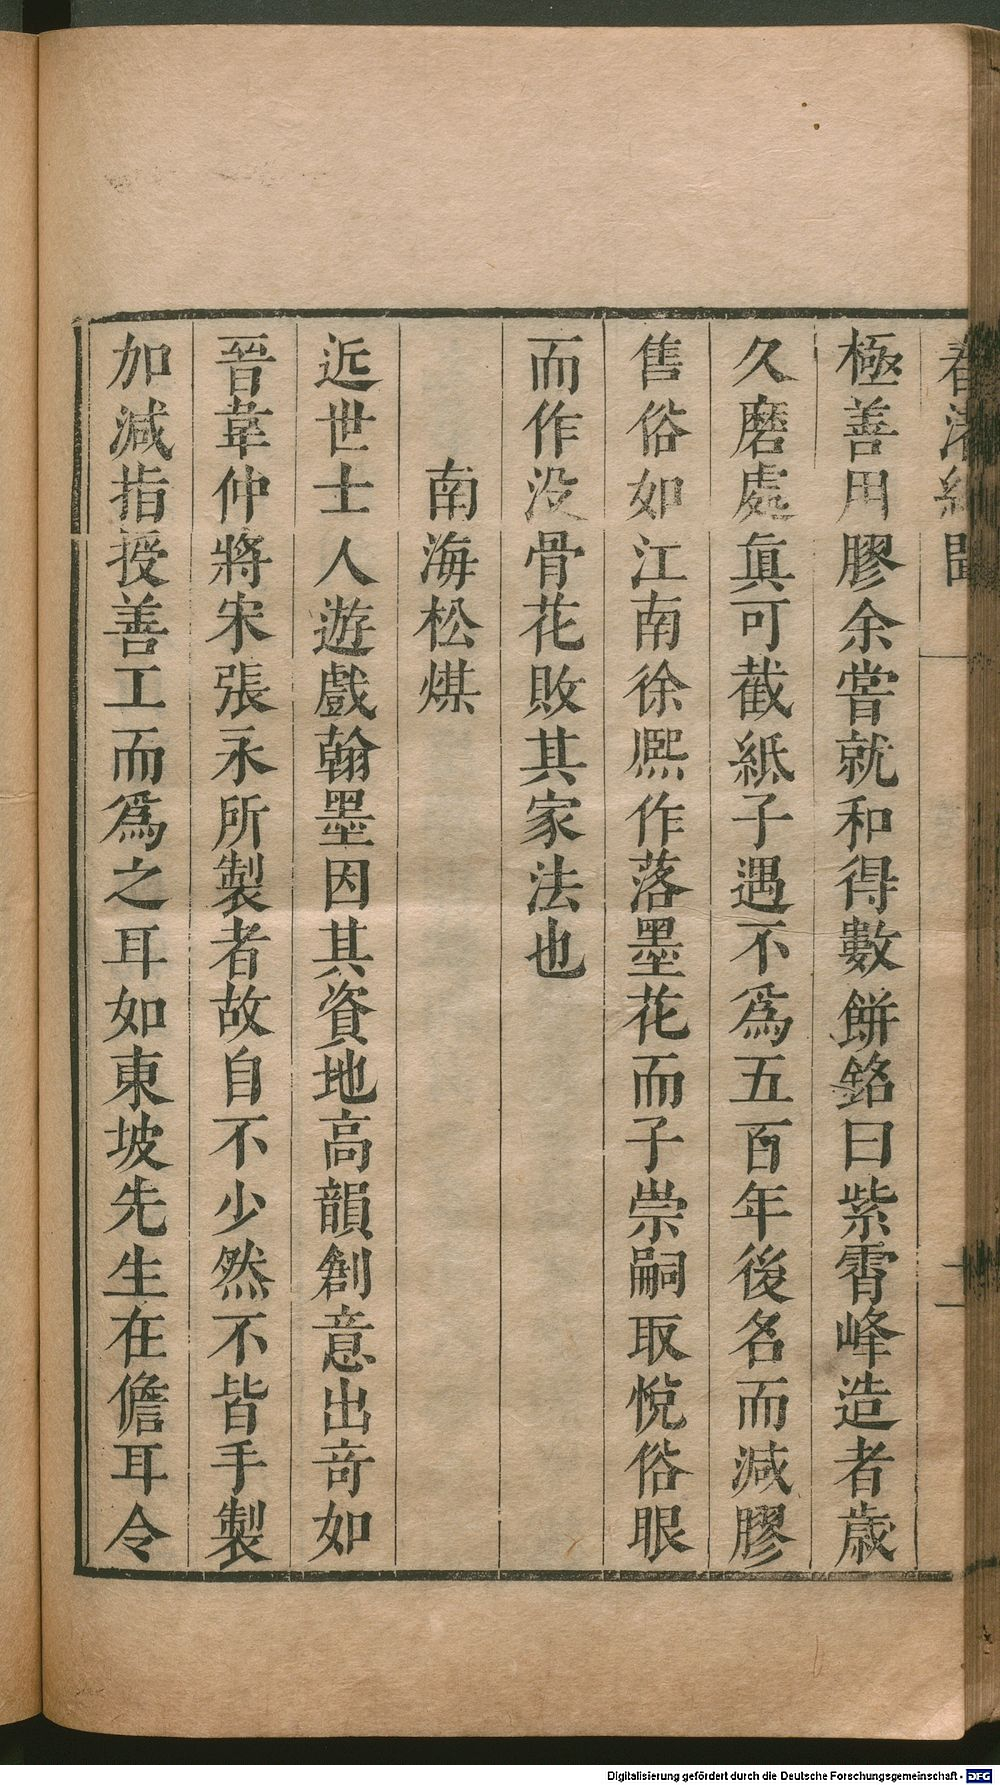 春渚紀聞
二
極善用膠余嘗就和得數餅銘曰紫霄峰造者歲
久磨處眞可截紙子遇不爲五百年後名而減膠
售俗如江南徐熈作落墨花而子崇嗣取悅俗眼
而作没骨花敗其家法也
南海松煤
近世士人遊戲翰墨因其資地高韻創意出竒如
晉韋仲將宋張永所製者故自不少然不皆手製
加減指授善工而爲之耳如東坡先生在儋耳令
Digitalisierung gefördert durch die Deutsche Forschungsgemeinschaft - DFG